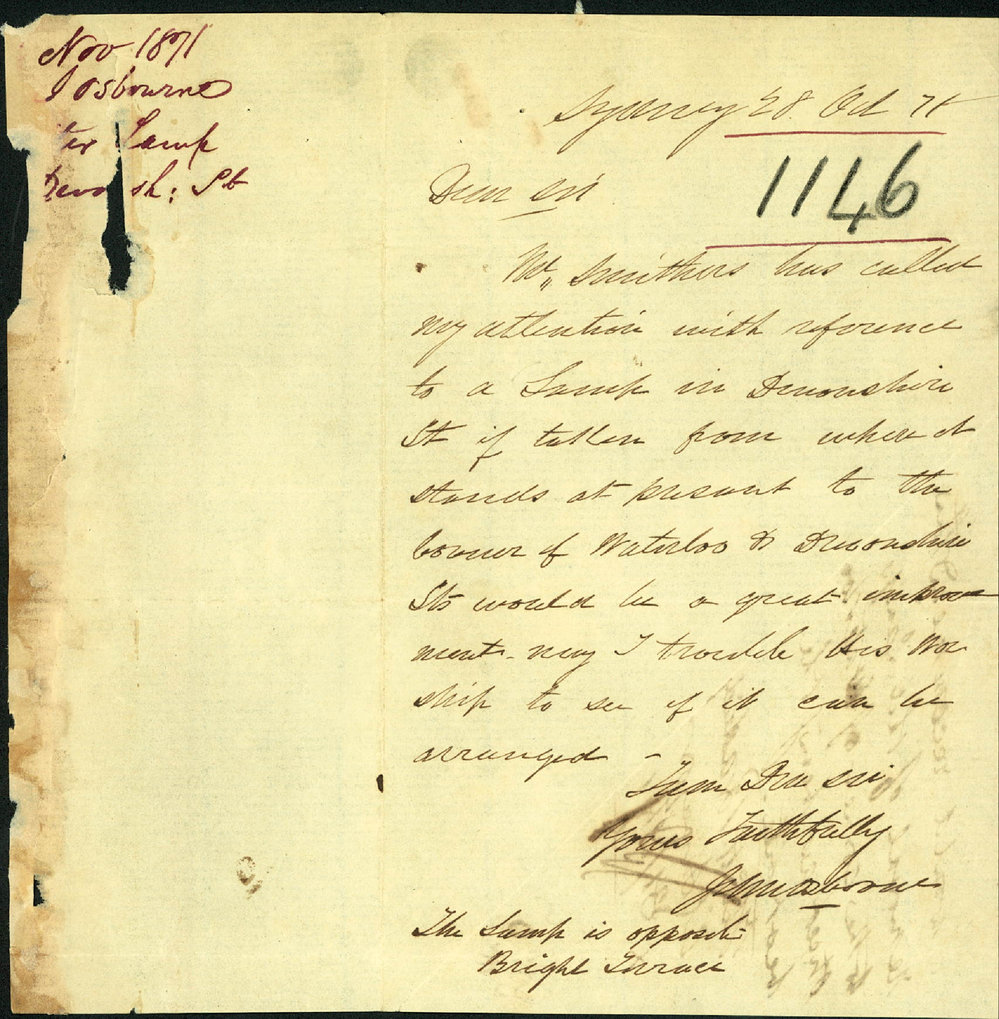 Nov 1871
J Osbourne
Lamp
Devonsh: St
Sydney 28. Oct 71
1146
Dear Sir
Mr,, Smithers has called
my attention with reference
to a Lamp in Devonshire
St if taken from where it
stands at present to the
Corner of Waterloo & Devonshire
Sts would be a great improve
ment - may I trouble His Wor
ship to see if it can be
arranged -
I am Dear Sir
Yours Faithfully
John Osborne
The Lamp is opposite
Bright Terrace